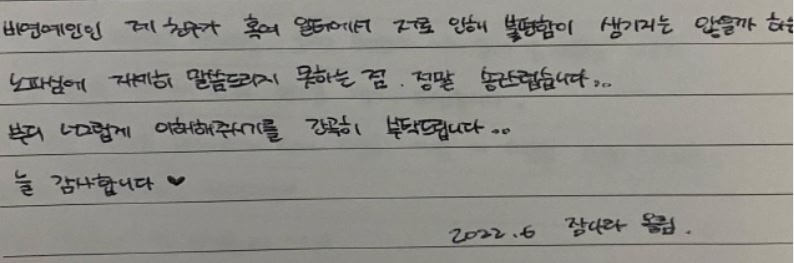 비연예인인 제 친구가 혹여 일터에서 저로 인해 불편함이 생기지는 않을까 하는
노파심에 자세히 말씀드리지 못하는 점. 정말 송구스럽습니다..
부디 너그럽게 이해해주시기를 간곡히 부탁드립니다..
늘 감사합니다 ♥
2022.6 장나라 올림.